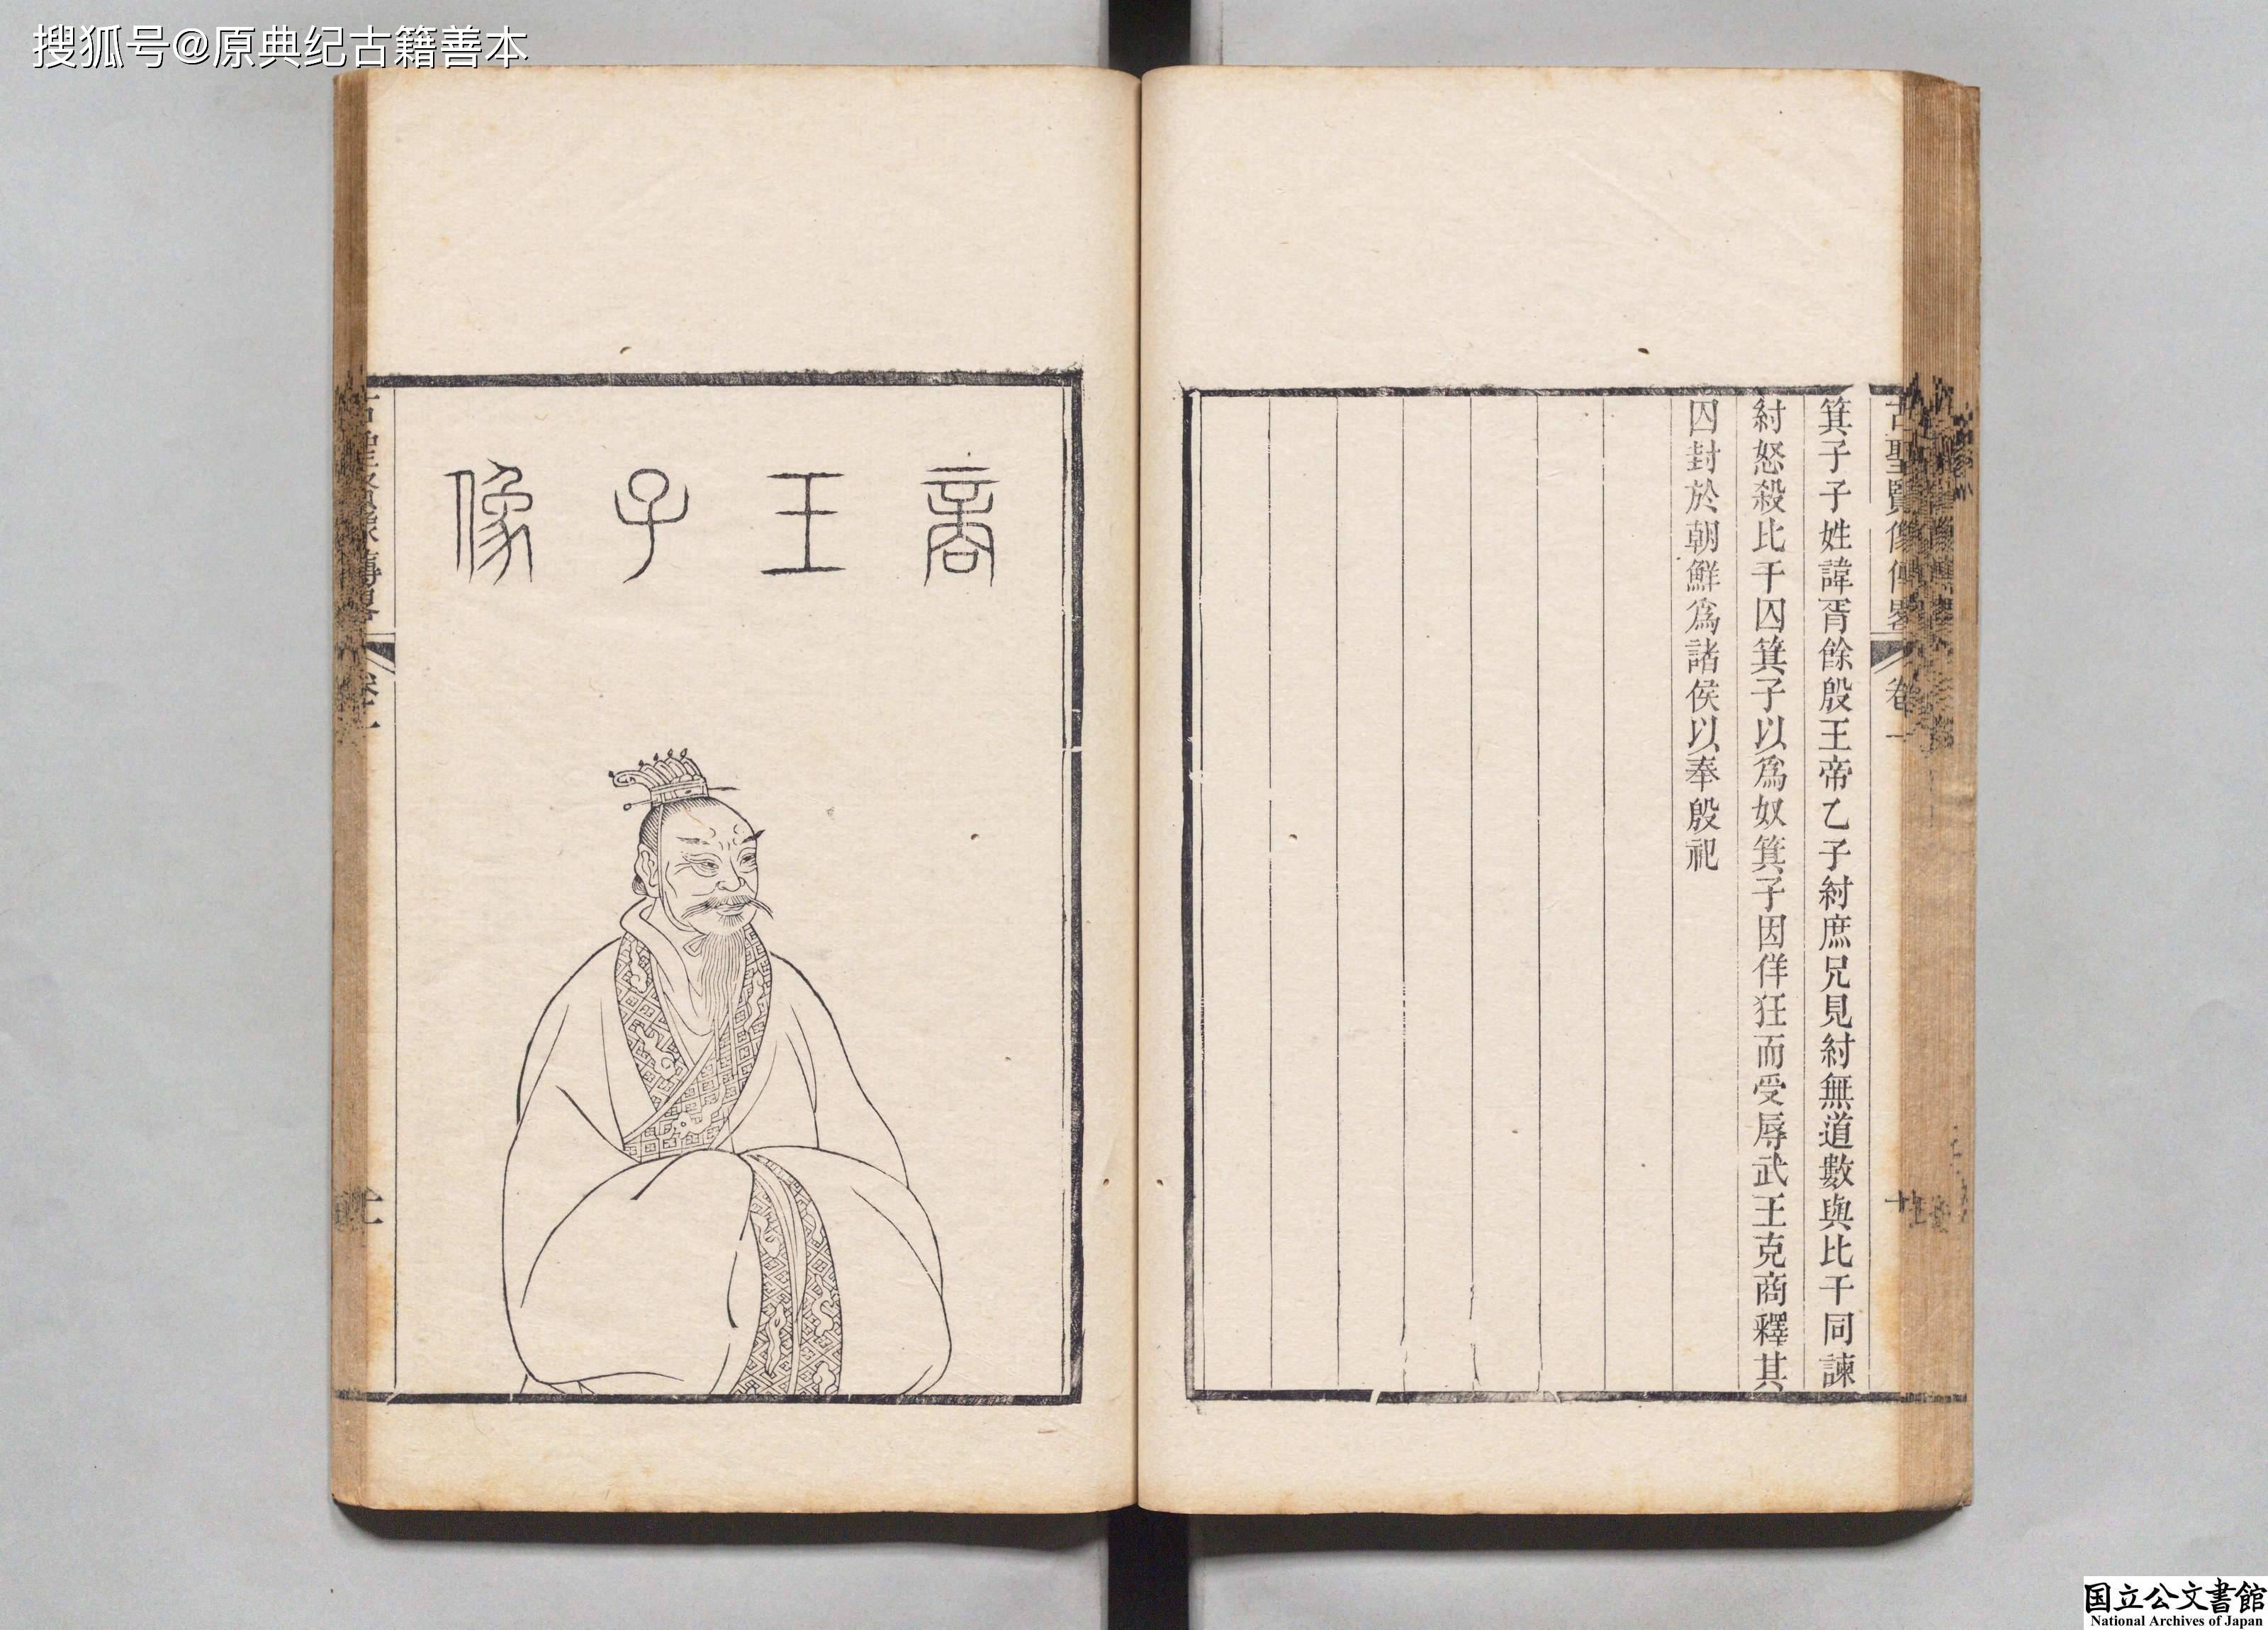 搜狐号@原典纪古籍善本
古聖賢像傳畧 卷一
箕子子姓諱胥餘殷王帝乙子紂庶兄見紂無道數與比干同諫
紂怒殺比干囚箕子以為奴箕子因佯狂而受辱武王克商釋其
囚封於朝鮮為諸侯以奉殷祀
商王子像
国立公文書館
National Archives of Japan